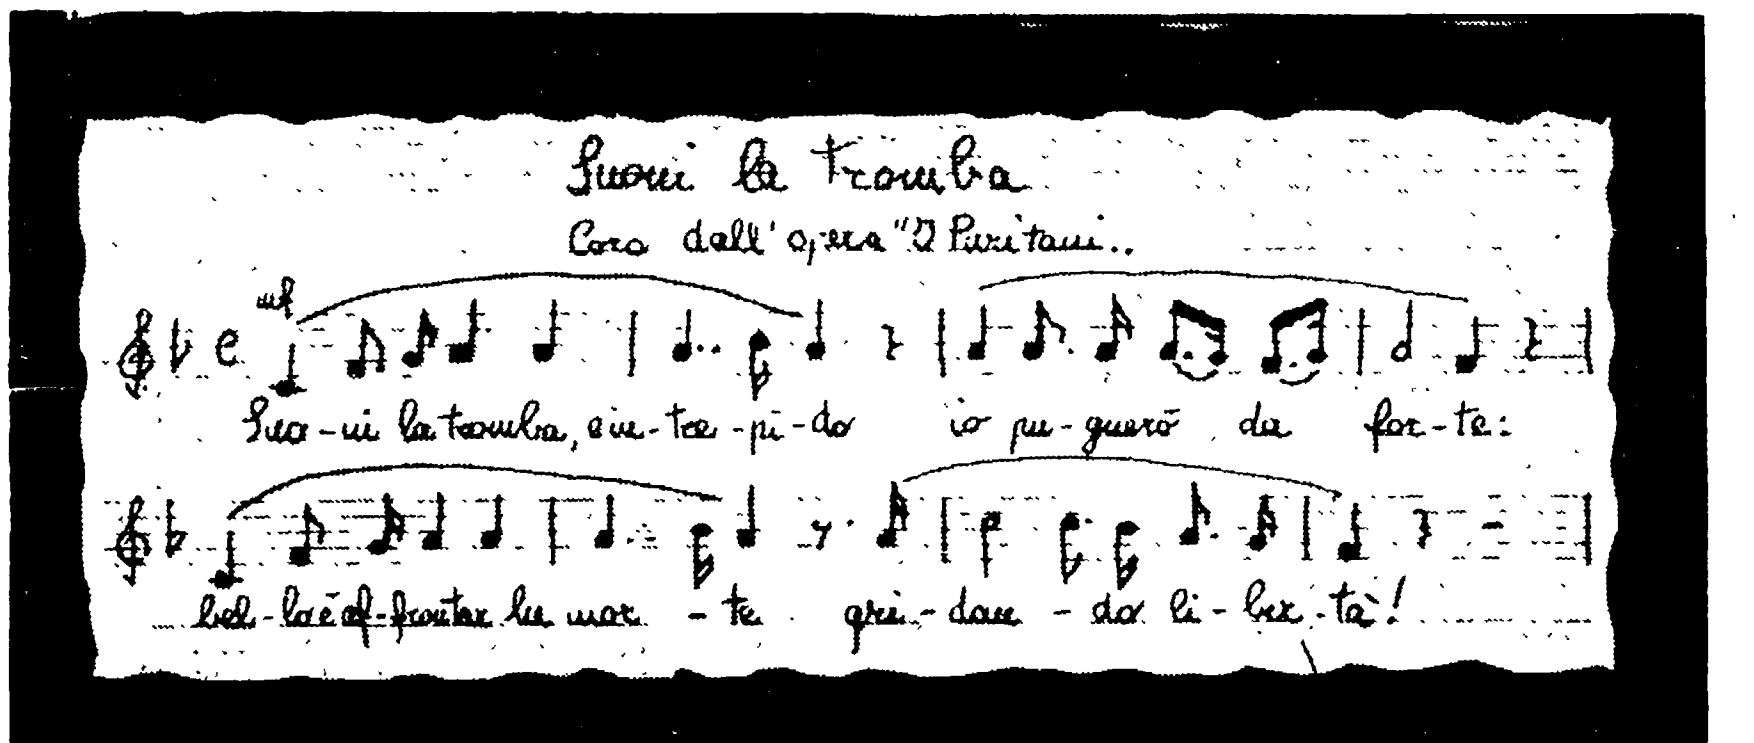 Suoni la tromba
Coro dall'opera "I Puritani..
mf
Suo-ni la tromba, e in-tre-pi-do io pu-gnerò da for-te:
bel-lo è af-frontar la mor-te gri-dan-do li-ber-tà!